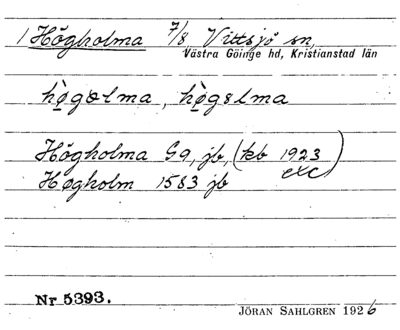 1 Högholma 7/8 Vittsjö sn,
Västra Göinge hd, Kristianstad län
hø̀gəlma, hø̀gəlma
Högholma G9, jb, (kb 1923 etc)
Høgholm 1583 jb
Nr 5393.
JÖRAN SAHLGREN 1926